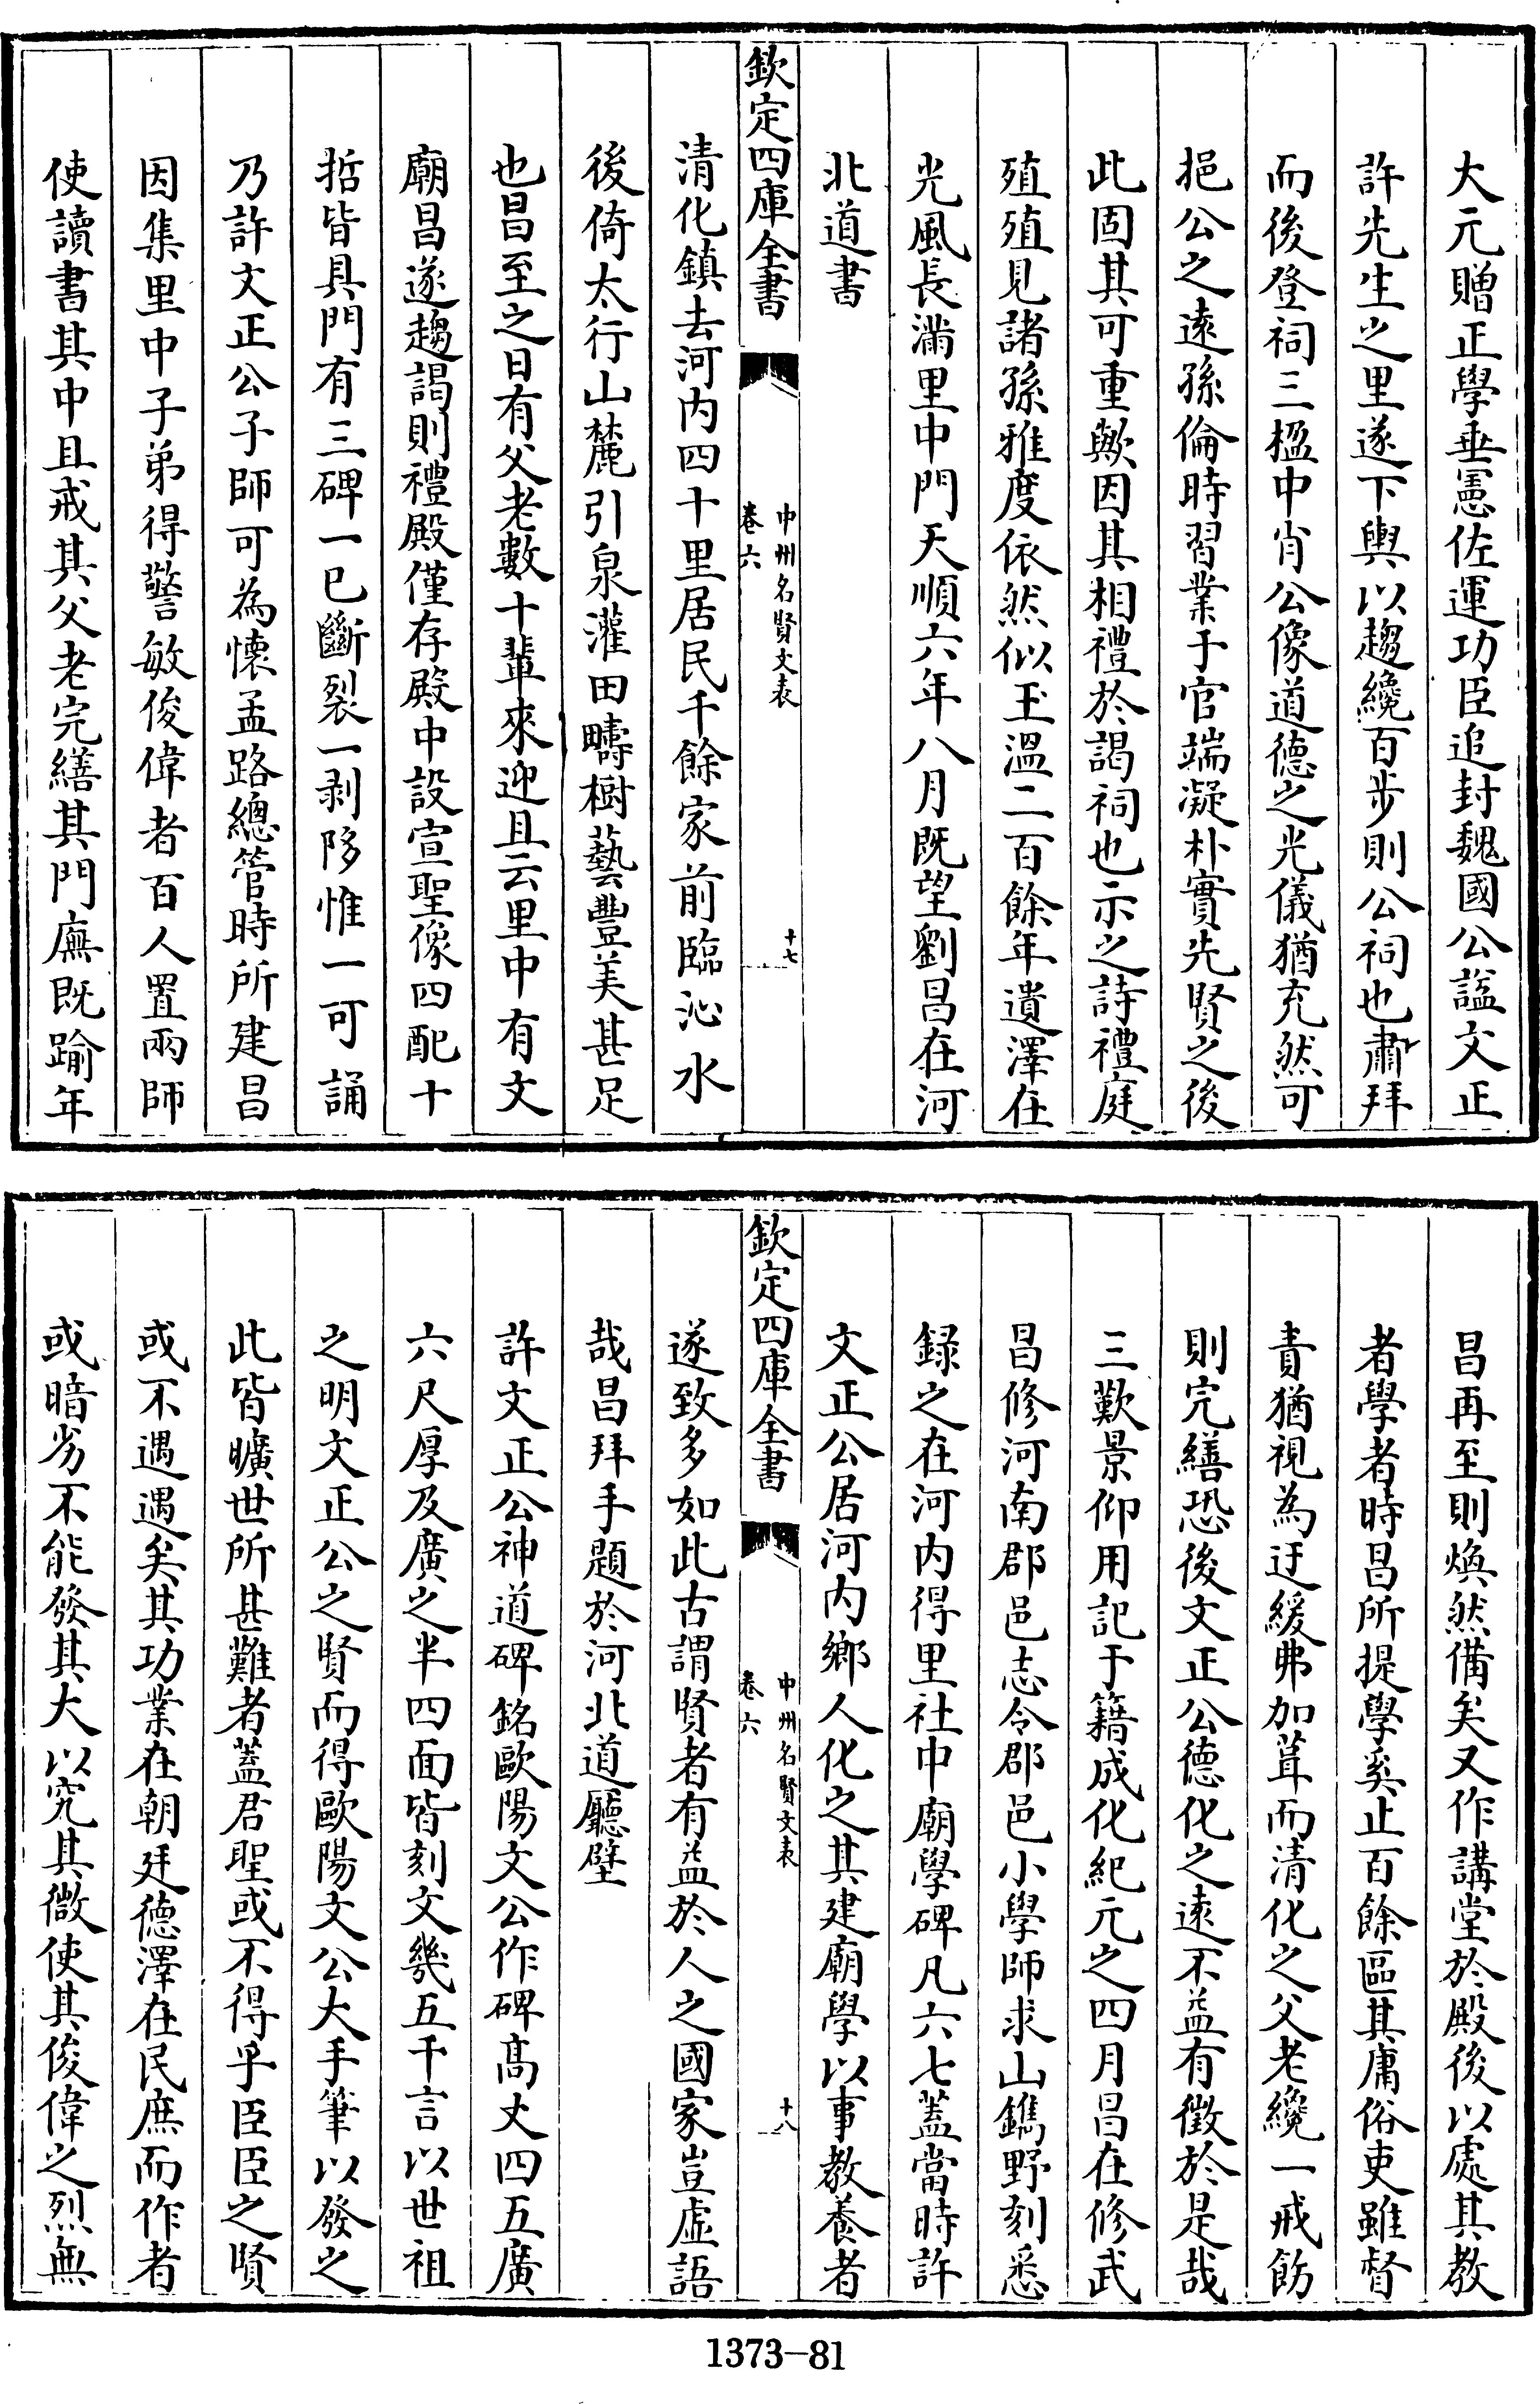 大元贈正學垂憲佐運功臣追封魏國公諡文正
許先生之里遂下輿以趨纔百步則公祠也肅拜
而後登祠三楹中肖公像道德之光儀猶充然可
挹公之遠孫倫時習業于官端凝朴實先賢之後
此固其可重歟因其相禮於謁祠也示之詩禮庭
殖殖見諸孫雅度依然似玉溫二百餘年遺澤在
光風長滿里中門天順六年八月既望劉昌在河
北道書
欽定四庫全書
中州名賢文表
卷六
十七
清化鎮去河内四十里居民千餘家前臨沁水
後倚太行山麓引泉灌田疇樹藝豐美甚足
也昌至之日有父老數十輩來迎且云里中有文
廟昌遂趨謁則禮殿僅存殿中設宣聖像四配十
哲皆具門有三碑一已斷裂一剥陊惟一可誦
乃許文正公子師可為懷孟路總管時所建昌
因集里中子弟得警敏俊偉者百人置兩師
使讀書其中且戒其父老完繕其門廡既踰年
昌再至則煥然備矣又作講堂於殿後以處其教
者學者時昌所提學奚止百餘區其庸俗吏雖督
責猶視為迂緩弗加葺而清化之父老纔一戒飭
則完繕恐後文正公德化之遠不益有徵於是哉
三歎景仰用記于籍成化紀元之四月昌在修武
昌修河南郡邑志令郡邑小學師求山鐫野刻悉
録之在河内得里社中廟學碑凡六七蓋當時許
文正公居河内鄉人化之其建廟學以事教養者
欽定四庫全書
中州名賢文表
卷六
十八
遂致多如此古謂賢者有益於人之國家豈虛語
哉昌拜手題於河北道廳壁
許文正公神道碑銘歐陽文公作碑髙丈四五廣
六尺厚及廣之半四面皆刻文幾五千言以世祖
之明文正公之賢而得歐陽文公大手筆以發之
此皆曠世所甚難者蓋君聖或不得乎臣臣之賢
或不遇遇矣其功業在朝廷德澤在民庶而作者
或暗劣不能發其大以究其微使其俊偉之烈無
1373-81